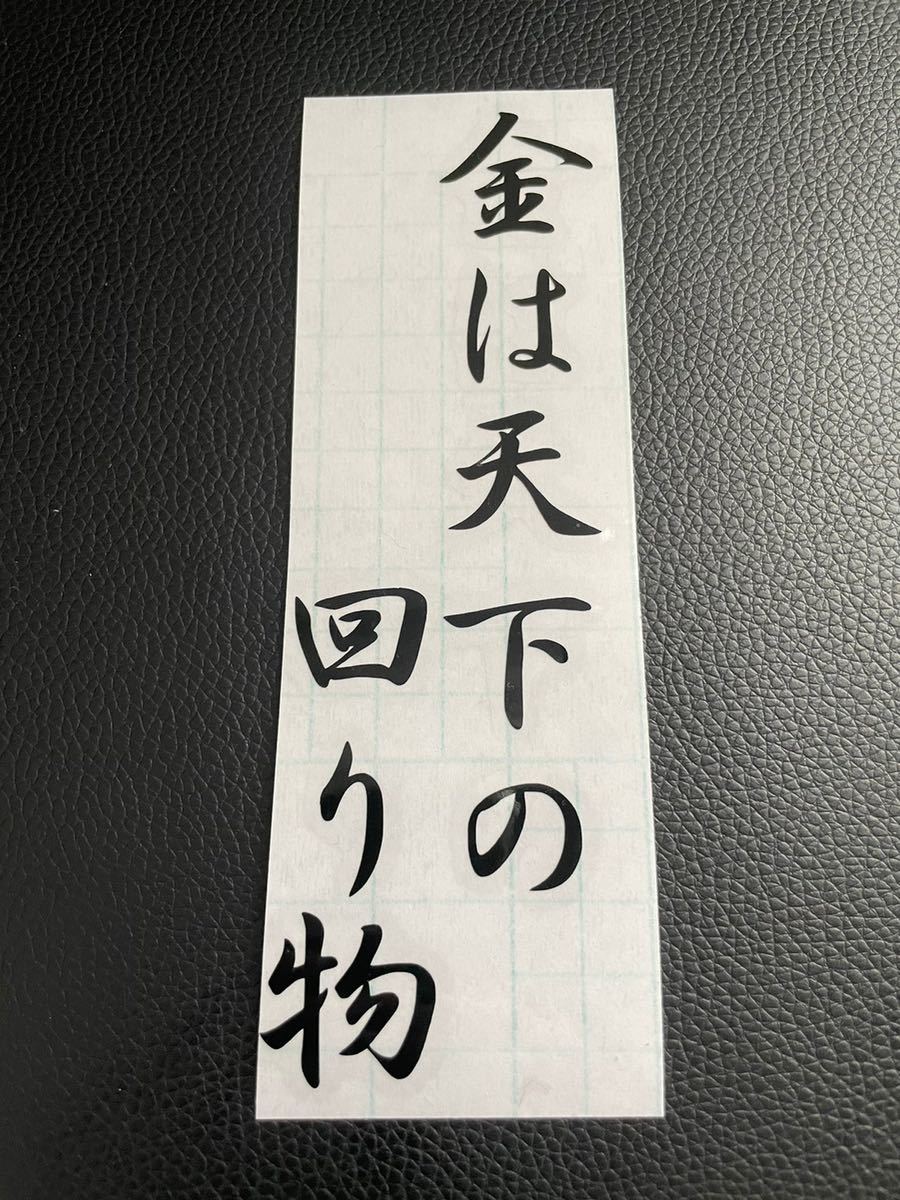 金は天下の
回り物